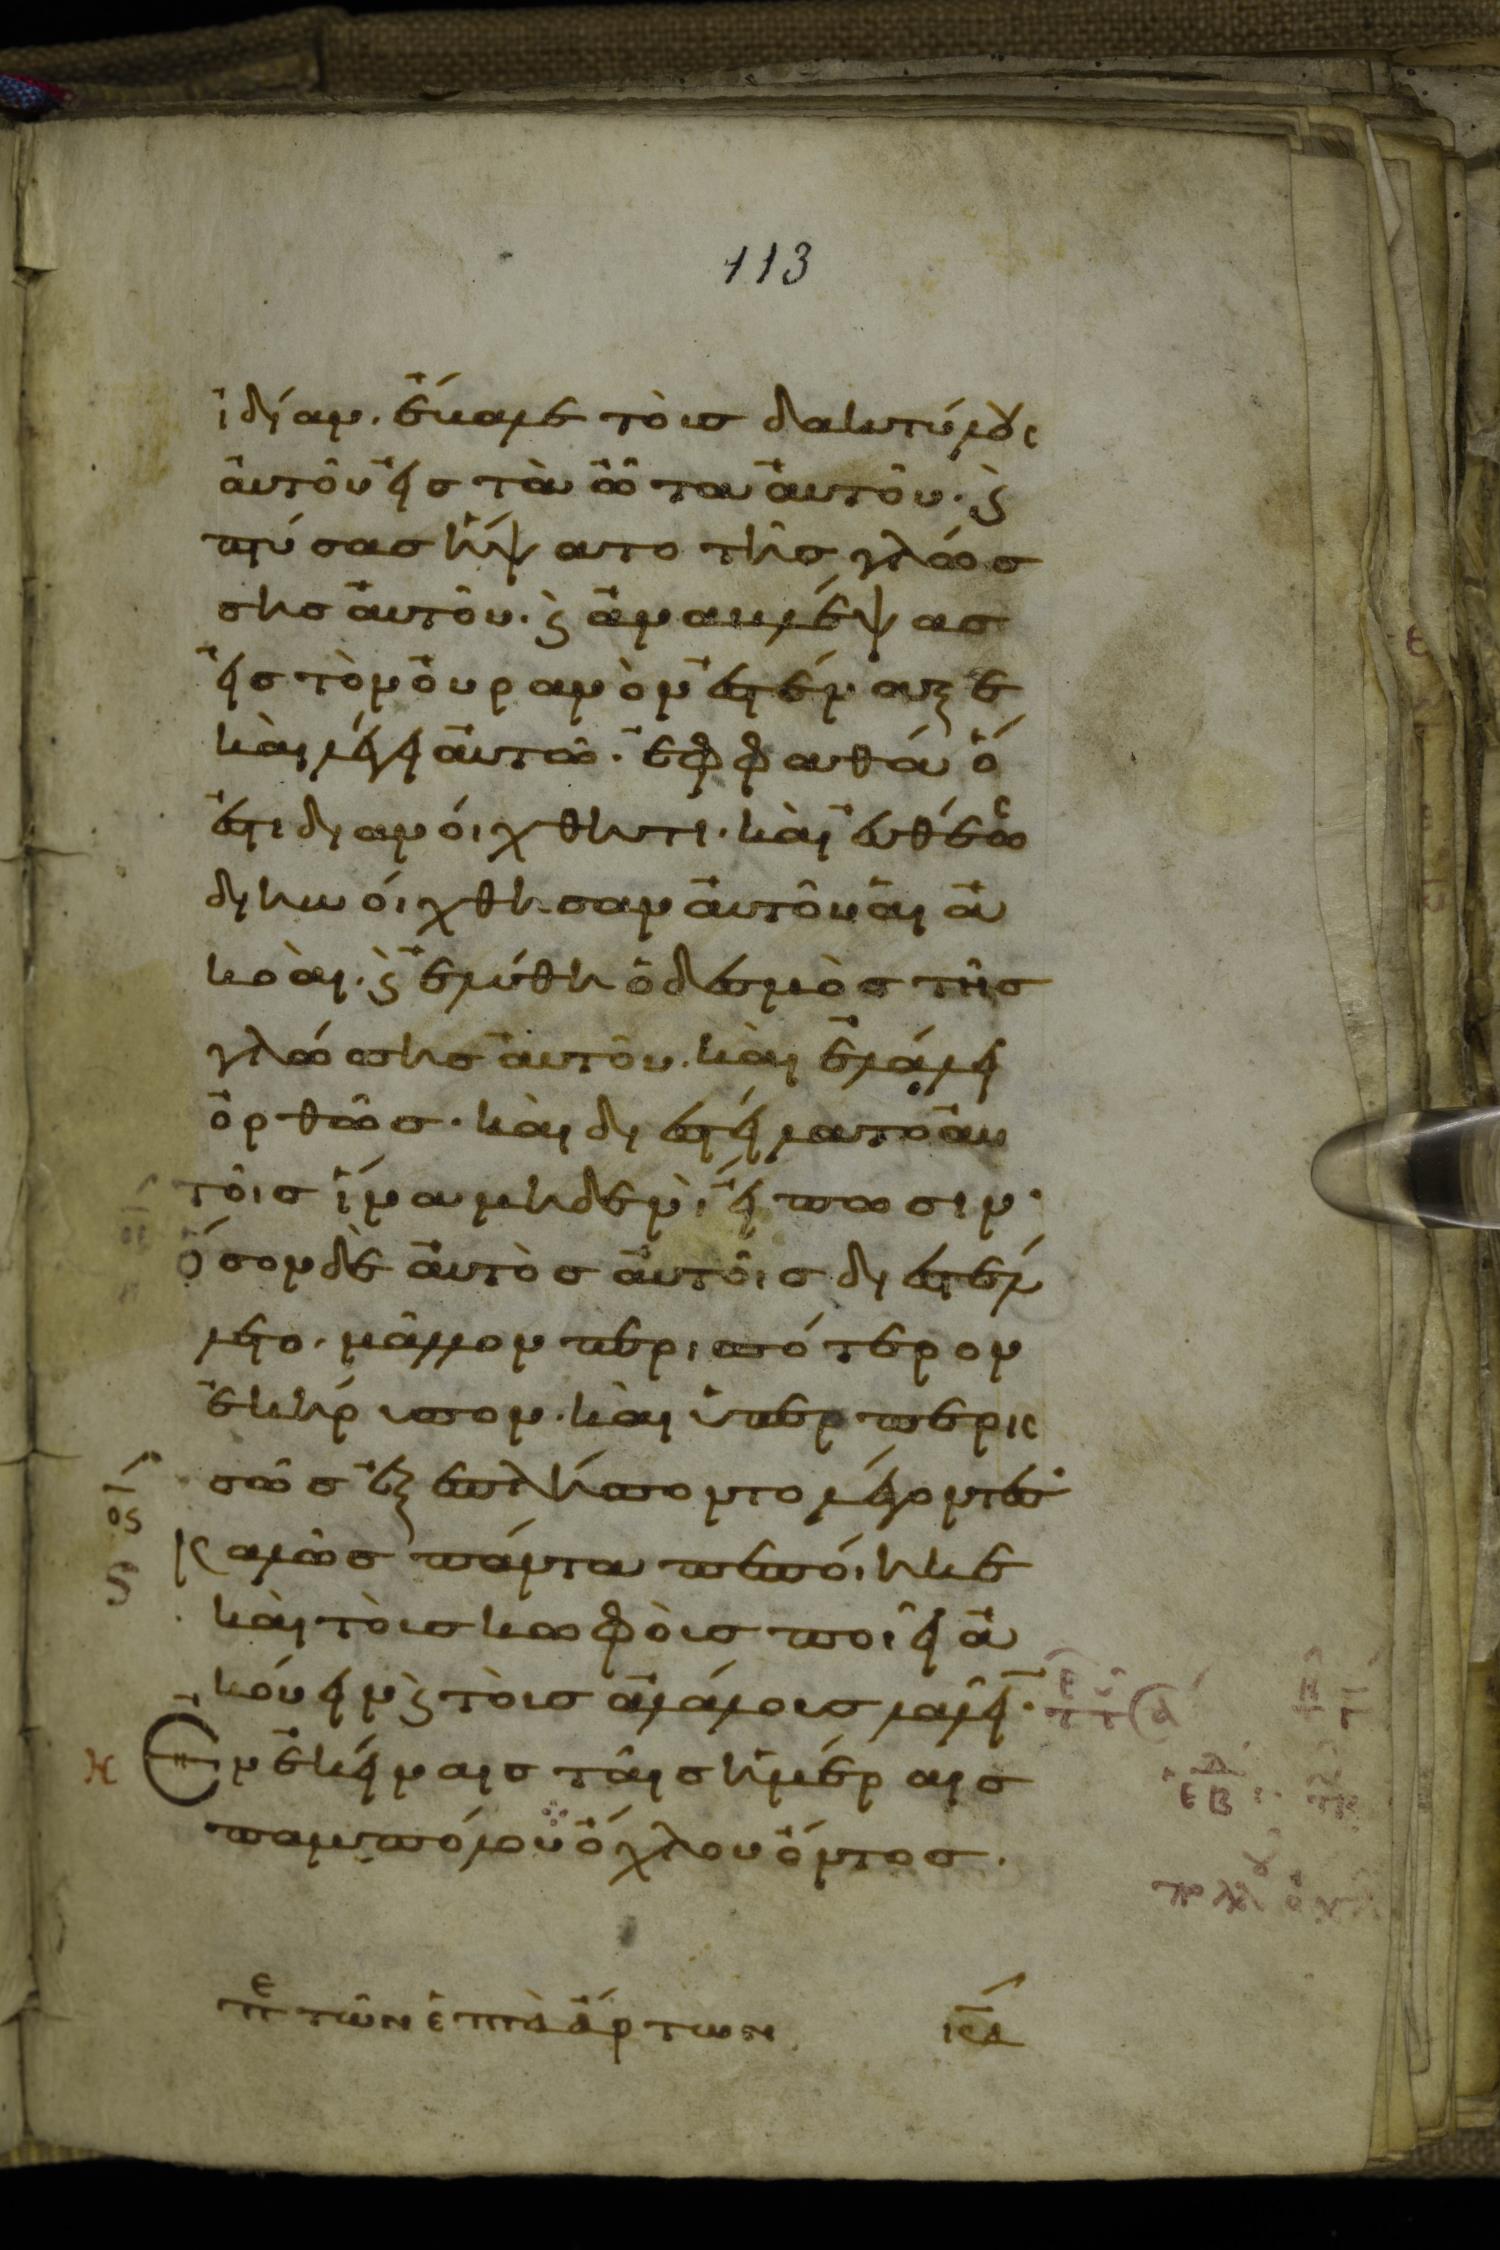 113
ἰδίαν. ἔβαλε τοὺς δακτύλους
αὐτοῦ εἰς τὰ ὦτα αὐτοῦ. ϗ
πτύσας ἥψατο τῆς γλώσ
σης αὐτοῦ. ϗ ἀναβλέψας
εἰς τὸν οὐρανὸν ἐστέναξε
καὶ λέγει αὐτῶ. ἐφφαθά ὅ
ἐστι διανοίχθητι. καὶ εὐθέως
διηνοίχθησαν αὐτοῦ αἱ ἀ
κοαὶ. ϗ ἐλύθη ὁ δεσμὸς τῆς
γλώσσης αὐτοῦ. καὶ ἐλάλει
ὀρθῶς. καὶ διεστείλατο αὐ
τοῖς ἵνα μηδενὶ εἴπωσιν.
ὅσον δὲ αὐτὸς αὐτοῖς διεστέλ
λετο. μᾶλλον περισσότερον
ἐκήρυσσον. καὶ ὑπερπερισ
σῶς ἐξεπλήσσοντο λέγοντες.
Καλῶς πάντα πεποίηκε
καὶ τοὺς κωφοὺς ποιεῖ ἀ
κούειν ϗ τοὺς ἀλάλους λαλεῖν.
Ἐν ἐκείναις ταῖς ἡμέραις
παμπόλλου ὄχλου ὄντος.
οϛ
ϛ
πε τῶν ἑπτὰ ἄρτων